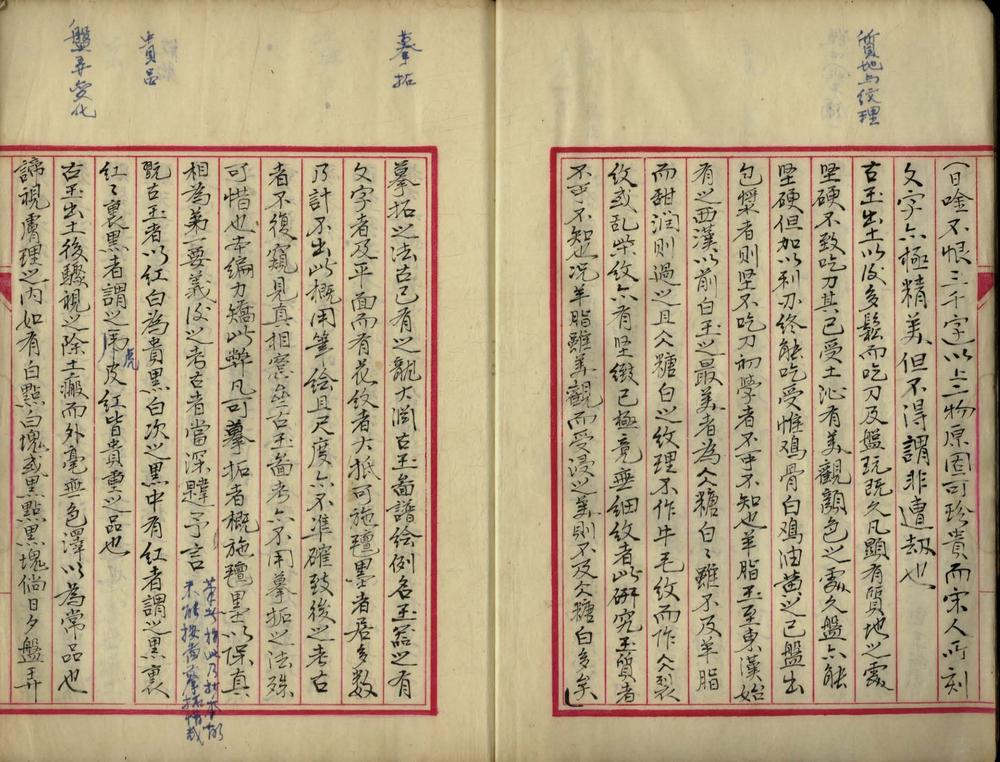 質地与纹理
(日啥不恨三千字以上二物原固可珍貴而宋人所刻
文字亦極精美但不得謂非遭劫也
古玉出土以後多鬆而吃刀及盤玩既久凡顯有質地之處
堅硬不致吃刀其已受土沁有美觀顏色之處久盤亦能
堅硬但加以利刃終能吃受惟鸡骨白鸡油黄之已盤出
包漿者則堅不吃刀初學者不可不知也羊脂玉至東漢始
有之西漢以前白玉之最美者為仌糖白仌糖白雖不及羊脂
而甜润則過之且仌糖白之紋理不作牛毛紋而作仌裂
紋或乱柴紋亦有堅緻已極竟無细紋者此研究玉質者
不可不知也况羊脂雖美觀而受浸之美則不及仌糖白多矣
摹拓
摹拓之法古已有之觀大闵古玉畐譜绘例名玉器之有
文字者及平面而有花纹者大抵可施氊墨者居多数
乃計不出此概用筆绘且尺度亦不准確致後之考古
者不復窺見真相寮無古玉畐考亦不用摹拓之法殊
可惜也本編力矯此弊凡可摹拓者概施氊墨以保真
相為第一要義後之考古者當深韙予言
貴品
玩古玉者以红白為貴黑白次之黑中有红者謂之黑裏
红红裏黑者謂之虎皮红皆貴重之品也
盤弄变化
古玉出土後驟視之除土瘢而外毫無色澤以為常品也
諦視膚理之内如有白點白塊或黑點黑塊倘日夕盤弄